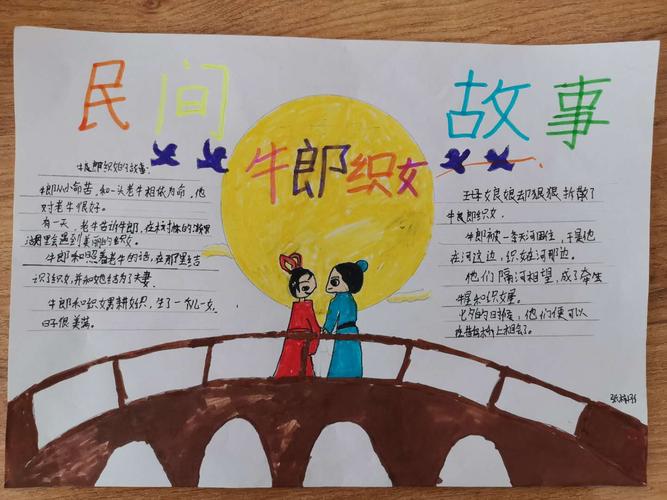 民间故事
牛郎织女
牛郎织女的故事
牛郎从小命苦,和一头老牛相依为命,他
对老牛很好。
有一天,老牛告诉牛郎,在村东的
湖里会遇到美丽的织女。
牛郎和照着老牛的话,在那里结
识了织女,并和她结为了夫妻
牛郎和织女男耕女织,生了一儿一女,
日子很美满。
王母娘娘却狠狠拆散了
牛郎织女。
牛郎被一条天河困住,于是他
在河这边,织女在河那边。
他们隔河相望,成了牵牛
星和织女星。
七夕的日时候,他们便可以
在鹊桥上相会了。